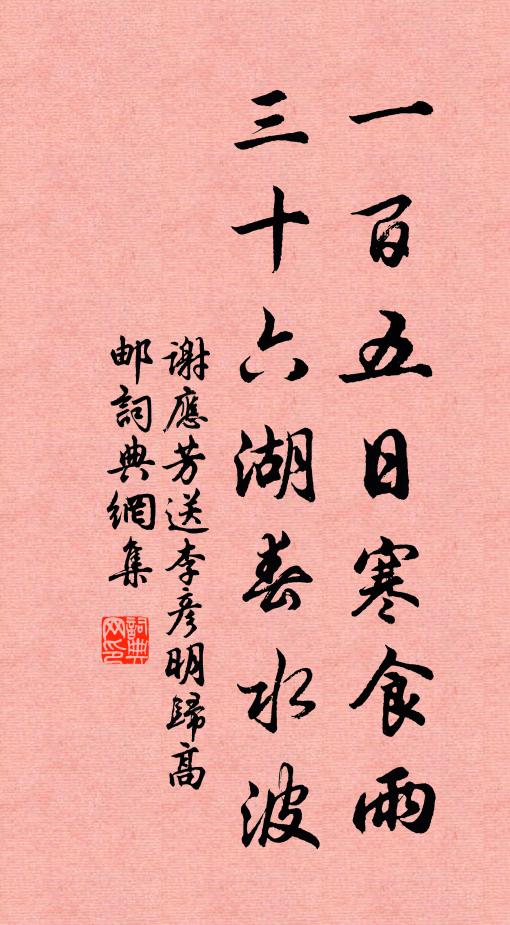 一百五日寒食雨
三十六湖春水波
謝應芳送李彥明歸高
邮詞典網集
詞典网印